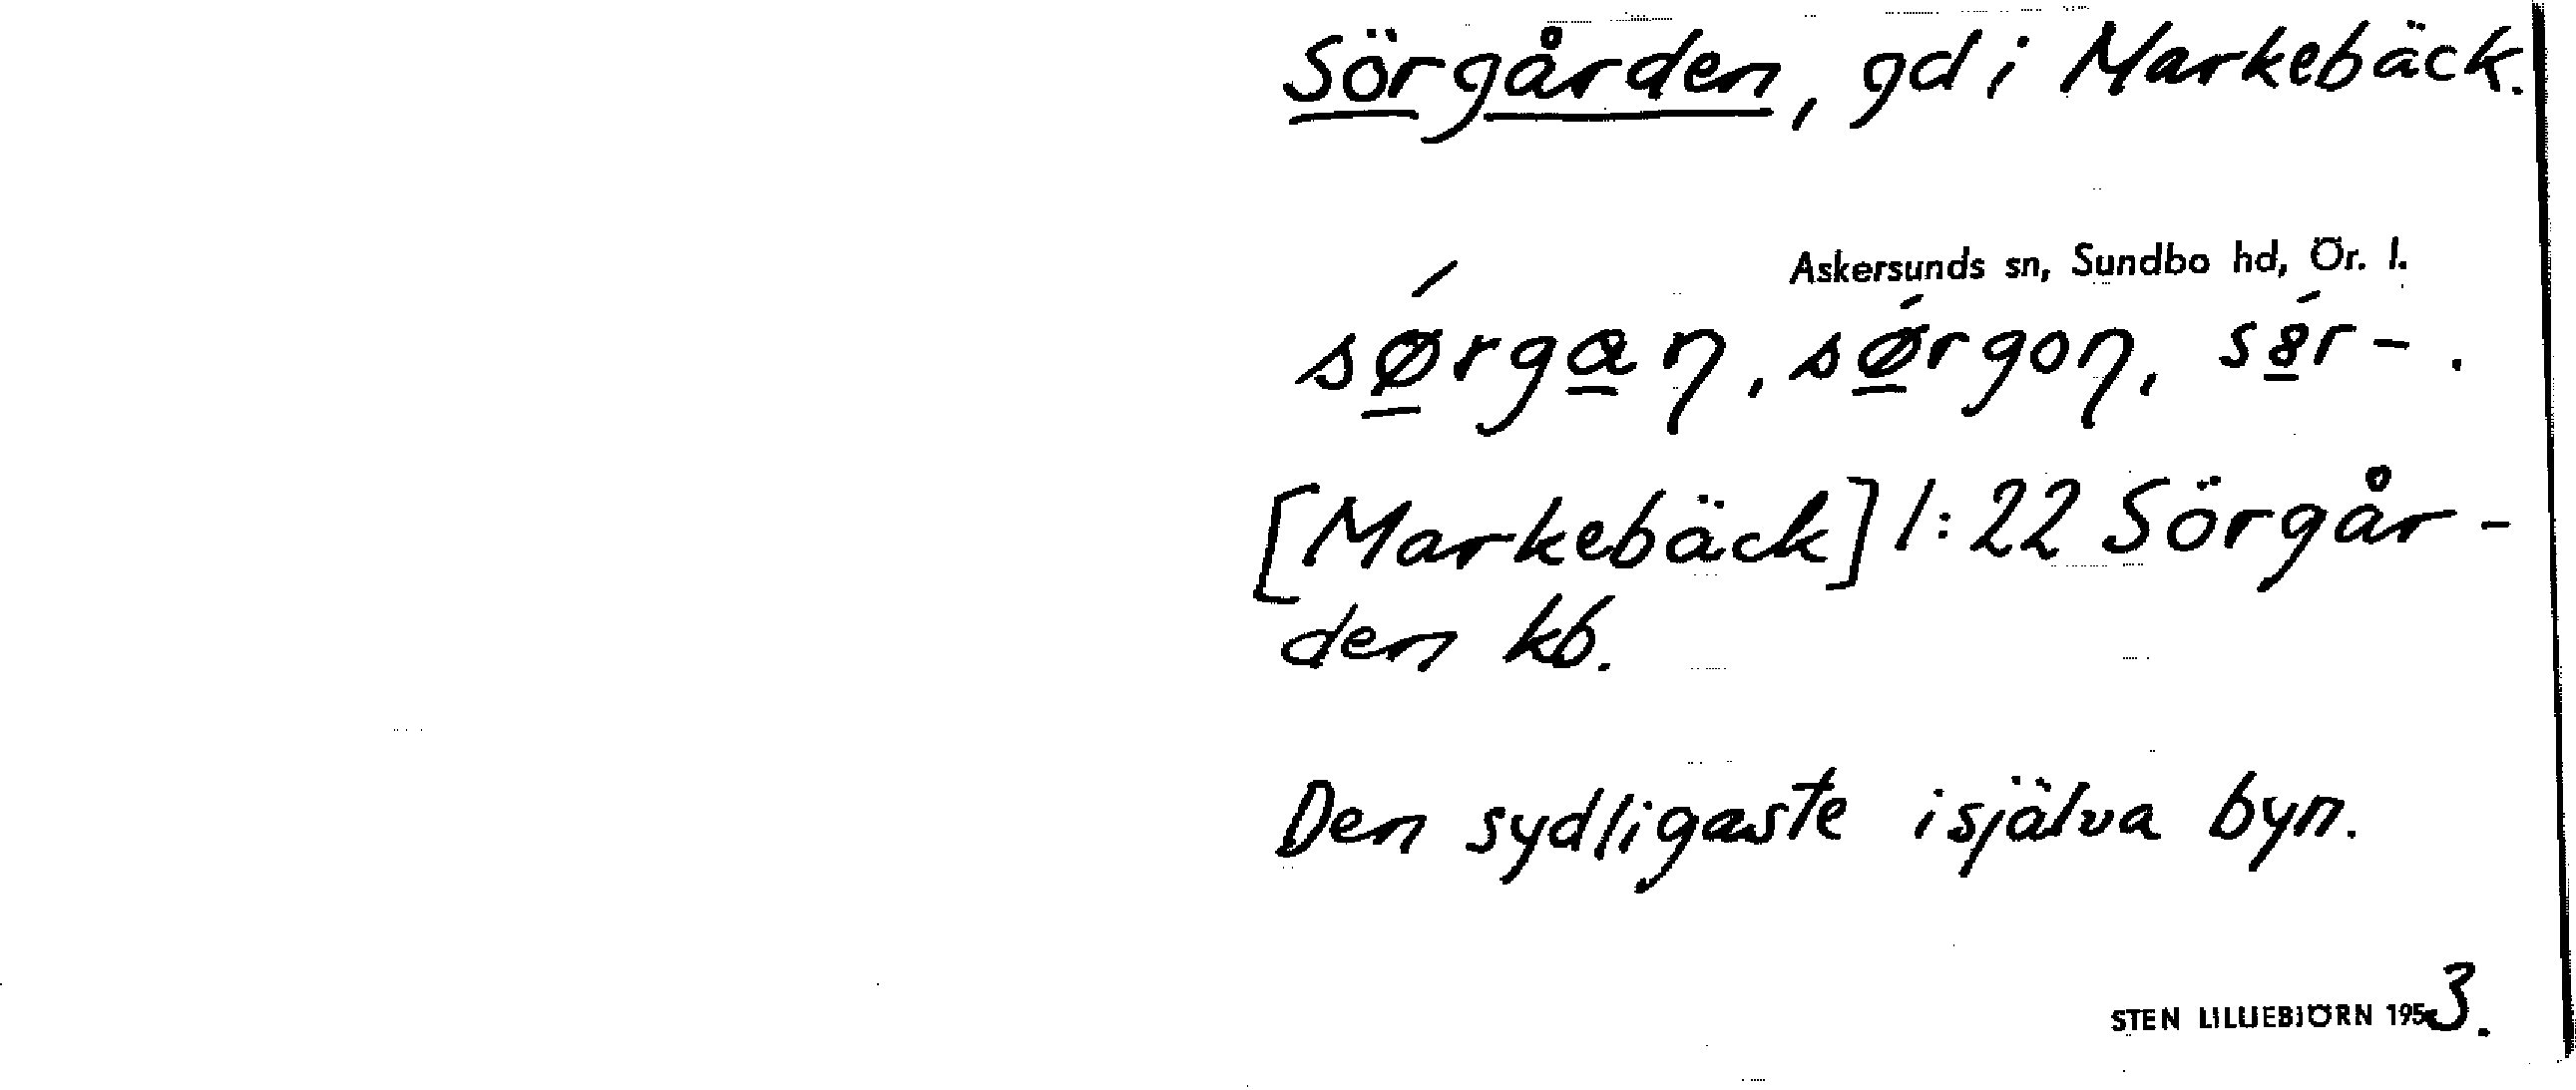 Sörgården, gd i Markebäck.
Askersunds sn, Sundbo hd, Ör. l.
sǿ̲rga̲n, sǿ̲rgon, s8̲́r-.
[Markebäck] 1:22 Sörgår-
den kb.
Den sydligaste i själva byn.
STEN LILLIEBJÖRN 1953.